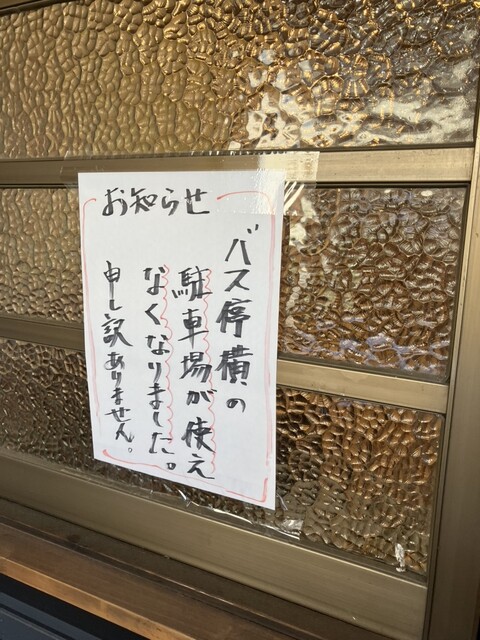 お知らせ
バス停横の
駐車場が使え
なくなりました。
申し訳ありません。